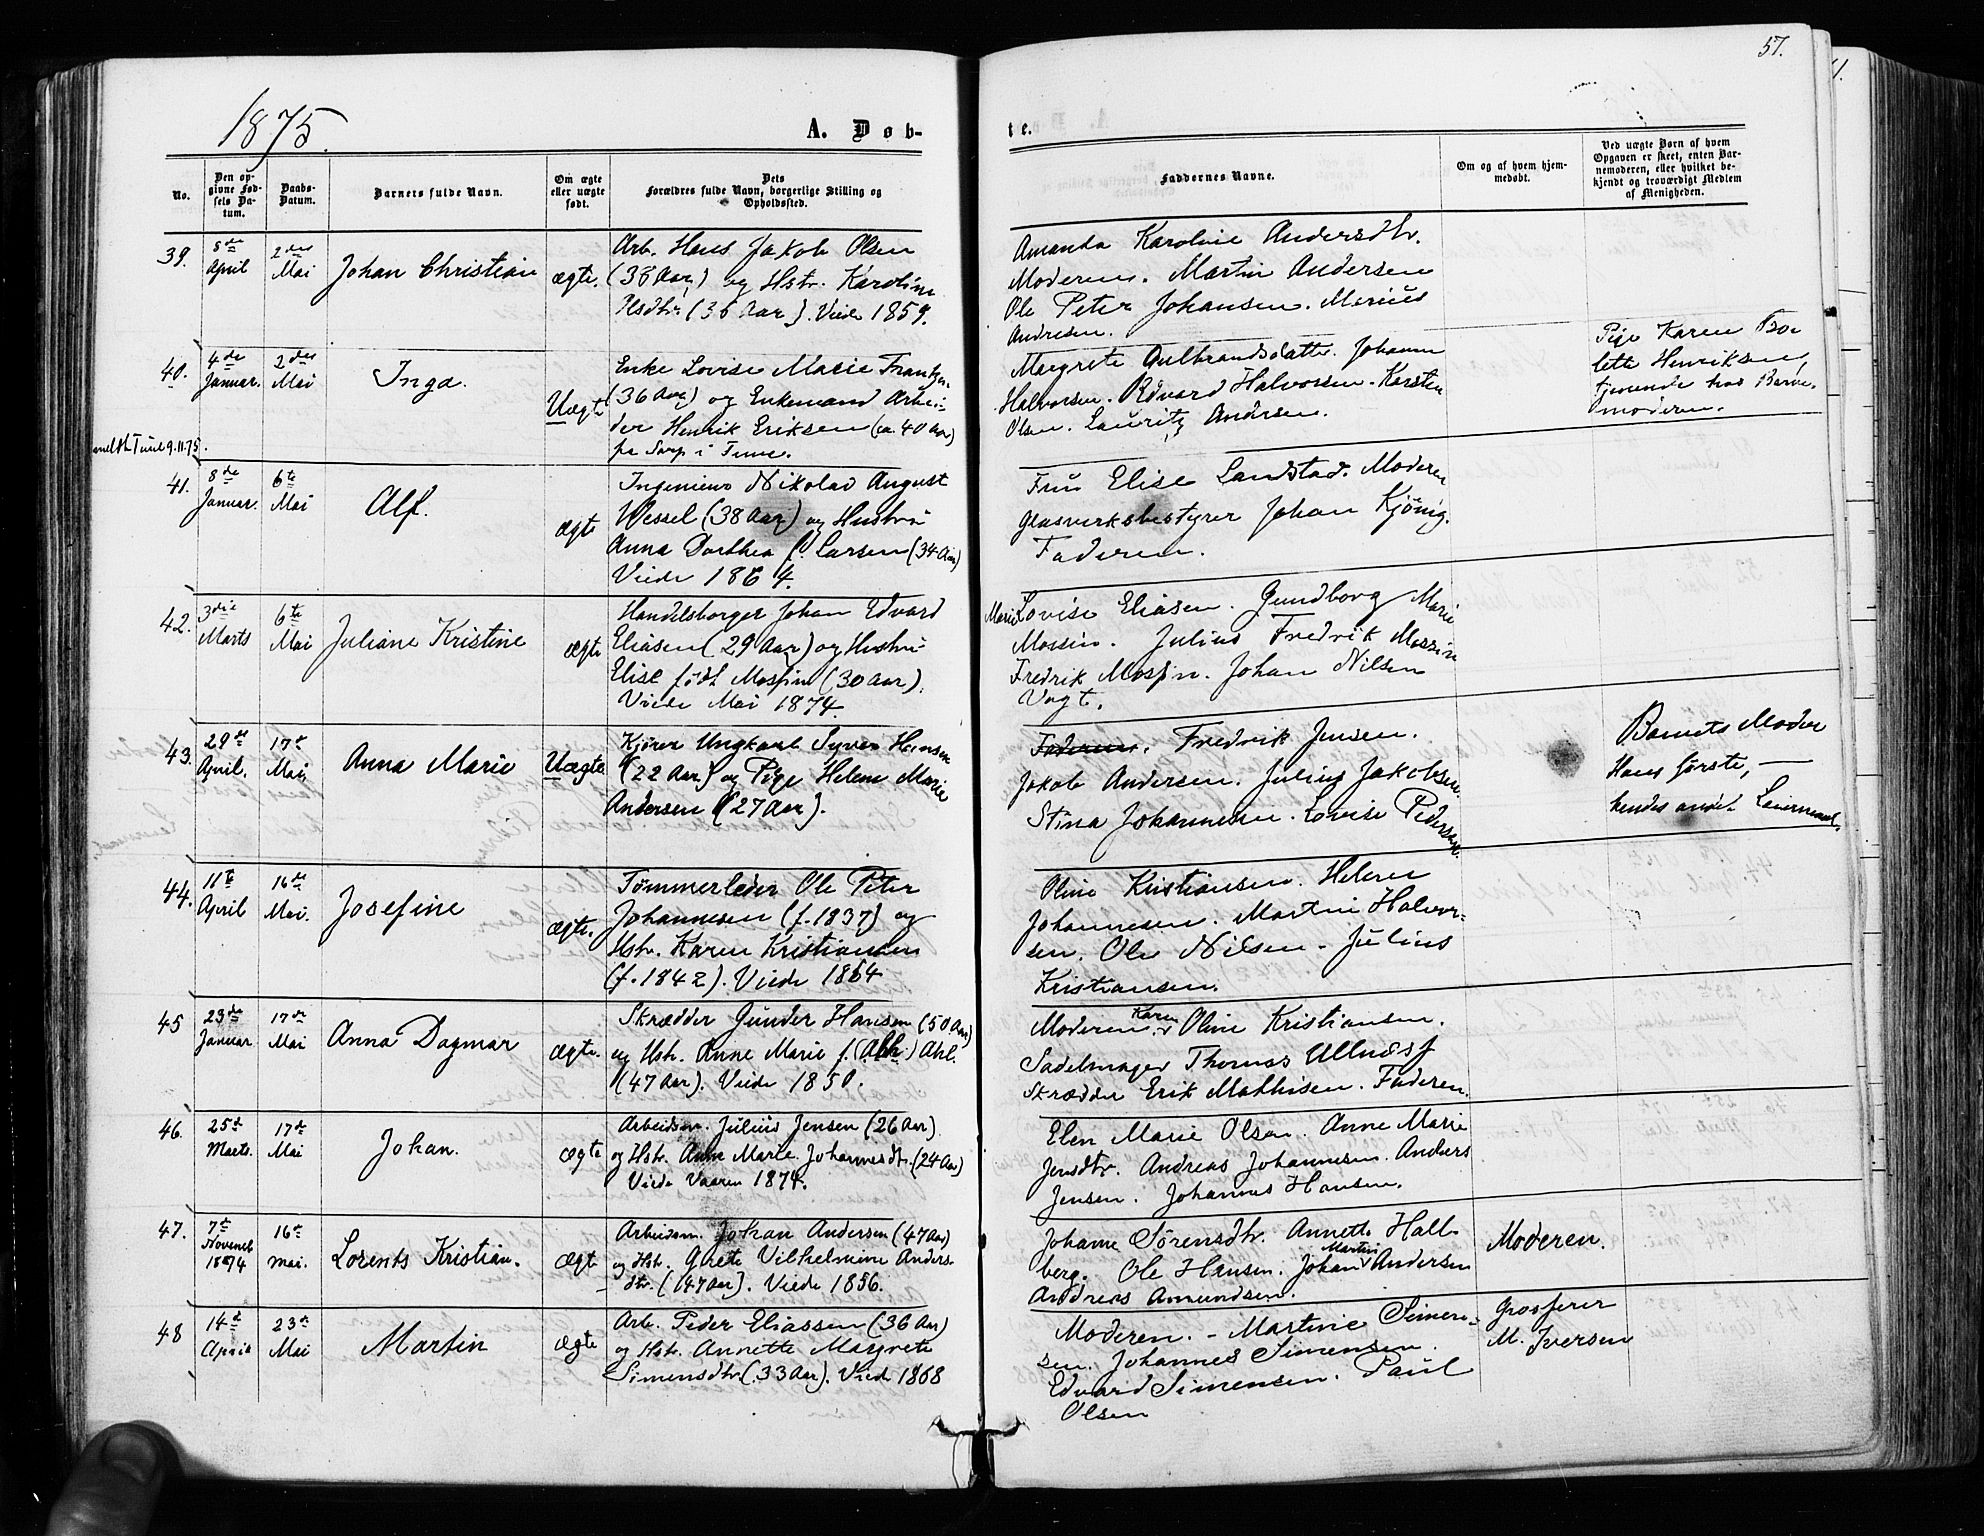 57.
1875.
A. Døb-
te.
No.
Den op-
givne Fød-
sels Da-
tum.
Daabs-
Datum.
Barnets fulde Navn.
Om ægte
eller uægte
født.
Dets
Forældres fulde Navn, borgerlige Stilling og
Opholdssted.
Faddernes Navne.
Om og af hvem hjem-
medøbt.
Ved uægte Børn af hvem
Opgaven er skeet, enten Bar-
nemoderen, eller hvilket be-
kjendt og troværdigt Medlem
af Menigheden.
39.
8de
April
2den
Mai
Johan Christian
ægte.
Arb. Hans Jakob Olsen
(38 Aar) og Hstr. Karoline
Olsdtr (36 Aar). Viede 1859.
Amanda Karoline Andersdtr.
Moderen. Martin Andersen
Ole Peter Johansen. Marius
Andresen.
40.
4de
Januar.
2den
Mai
Inga.
Uægte
Enke Lovise Marie Frantzen
(36 Aar) og Enkemand Arbei-
der Henrik Eriksen (ca. 40 Aar)
fra Sarp i Tune.
Margrete Gulbrandsdatter. Johann
Halvorsen. Edvard Halvorsen. Karsten
Olsen. Lauritz Andersen.
Pige Karen Tho-
lette Henriksen,
tjenende hos Barne-
moderen.
meldt Tune 9.11.75.
41.
8de
Januar.
6te
Mai
Alf.
ægte
Ingeniør Nikolai August
Wessel (38 Aar) og Hustru
Anna Dorthea f. Larsen (34 Aar)
Viede 1864.
Fru Elise Landstad. Moderen
Glasverksbestyrer Johan Kjönig.
Faderen.
42.
3die
Marts
6te
Mai
Juliane Kristine
ægte
Handelsborger Johan Edvard
Eliasen (29 Aar) og Hustru
Elise født Mossin (30 Aar).
Viede Mai 1874.
Marie Lovise Eliasen. Gundborg Marie
Mossin. Julius Fredrik Mossin
Fredrik Mossin. Johan Nilsen
Vogt.
43.
29de
April.
17de
Mai
Anna Marie
Uægte
Kjører Ungkarl Syver Hansen
(22 Aar) og Pige Helene Marie
Andersen (27 Aar).
Faderen. Fredrik Jensen.
Jakob Andersen. Julius Jakobsen.
Stina Johannesen. Lovise Pedersen.
Barnets Moder
Hans første, —
hendes andet Leiermaal.
44.
11te
April
16de
Mai.
Josefine
ægte.
Tømmerleder Ole Peter
Johannesen (f. 1837) og
Hstr. Karen Kristiansen
(f. 1842). Viede 1864
Oline Kristiansen. Helene
Johannesen. Martin Halvor-
sen. Ole Nilsen - Julius
Kristiansen.
45
23de
Januar.
17de
Mai
Anna Dagmar
ægte.
Skrædder Gunder Hansen (50 Aar)
og Hstr. Anne Marie f. (Abh.) Ahl.
(47 Aar). Viede 1850.
Karen
Moderen. Oline Kristiansen.
Sadelmager Thomas Ullnæss
Skrædder Erik Mathisen. Faderen.
46.
25de
Marts.
17de
Mai
Johan.
ægte
Arbeidsm. Julius Jensen (26 Aar).
og Hstr. Anne Marie Johannesdtr. (24 Aar)
Viede Vaaren 1874.
Elen Marie Olsen. Anne Marie
Jensdtr. Andreas Johannesen. Anders
Jensen. Johannes Hansen.
47.
7de
Novemb.
1874
16de
Mai.
Lorents Kristian.
Ægte
Arbeidsm. Johan Andersen (47 Aar)
og Hstr. Grete Vilhelmine Anders-
dtr. (47 Aar). Viede 1856.
Johanne Sørensdtr. Annette Hall-
berg. Ole Hansen. Johan Martin Andersen
Andreas Amundsen.
Moderen.
48
14de
April
23de
Mai
Martin
Ægte
Arb. Peder Eliassen (36 Aar)
og Hstr. Annette Margrete
Simensdtr. (33 Aar). Viede 1868
Moderen. - Martine Simen-
sen. Johannes Simensen.
Edvard Simensen. Paul
Olsen
Grosserer
M. Iversen